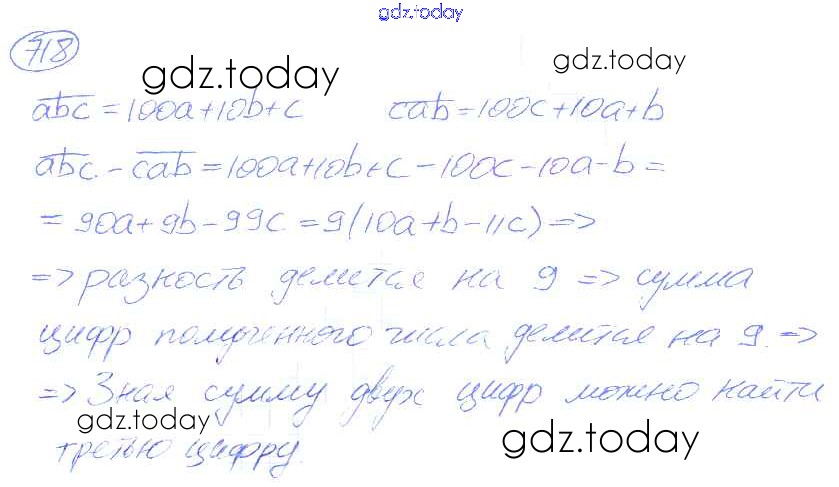 gdz.today
718
gdz.today
gdz.today
abc = 100a+10b+c cab = 100c+10a+b
abc - cab = 100a+10b+c-100c-10a-b =
= 90a+9b-99c = 9(10a+b-11c) =>
=> разность делится на 9 => сумма
цифр полученного числа делится на 9. =>
=> Зная сумму двух цифр можно найти
gdz.today
gdz.today
третью цифру.